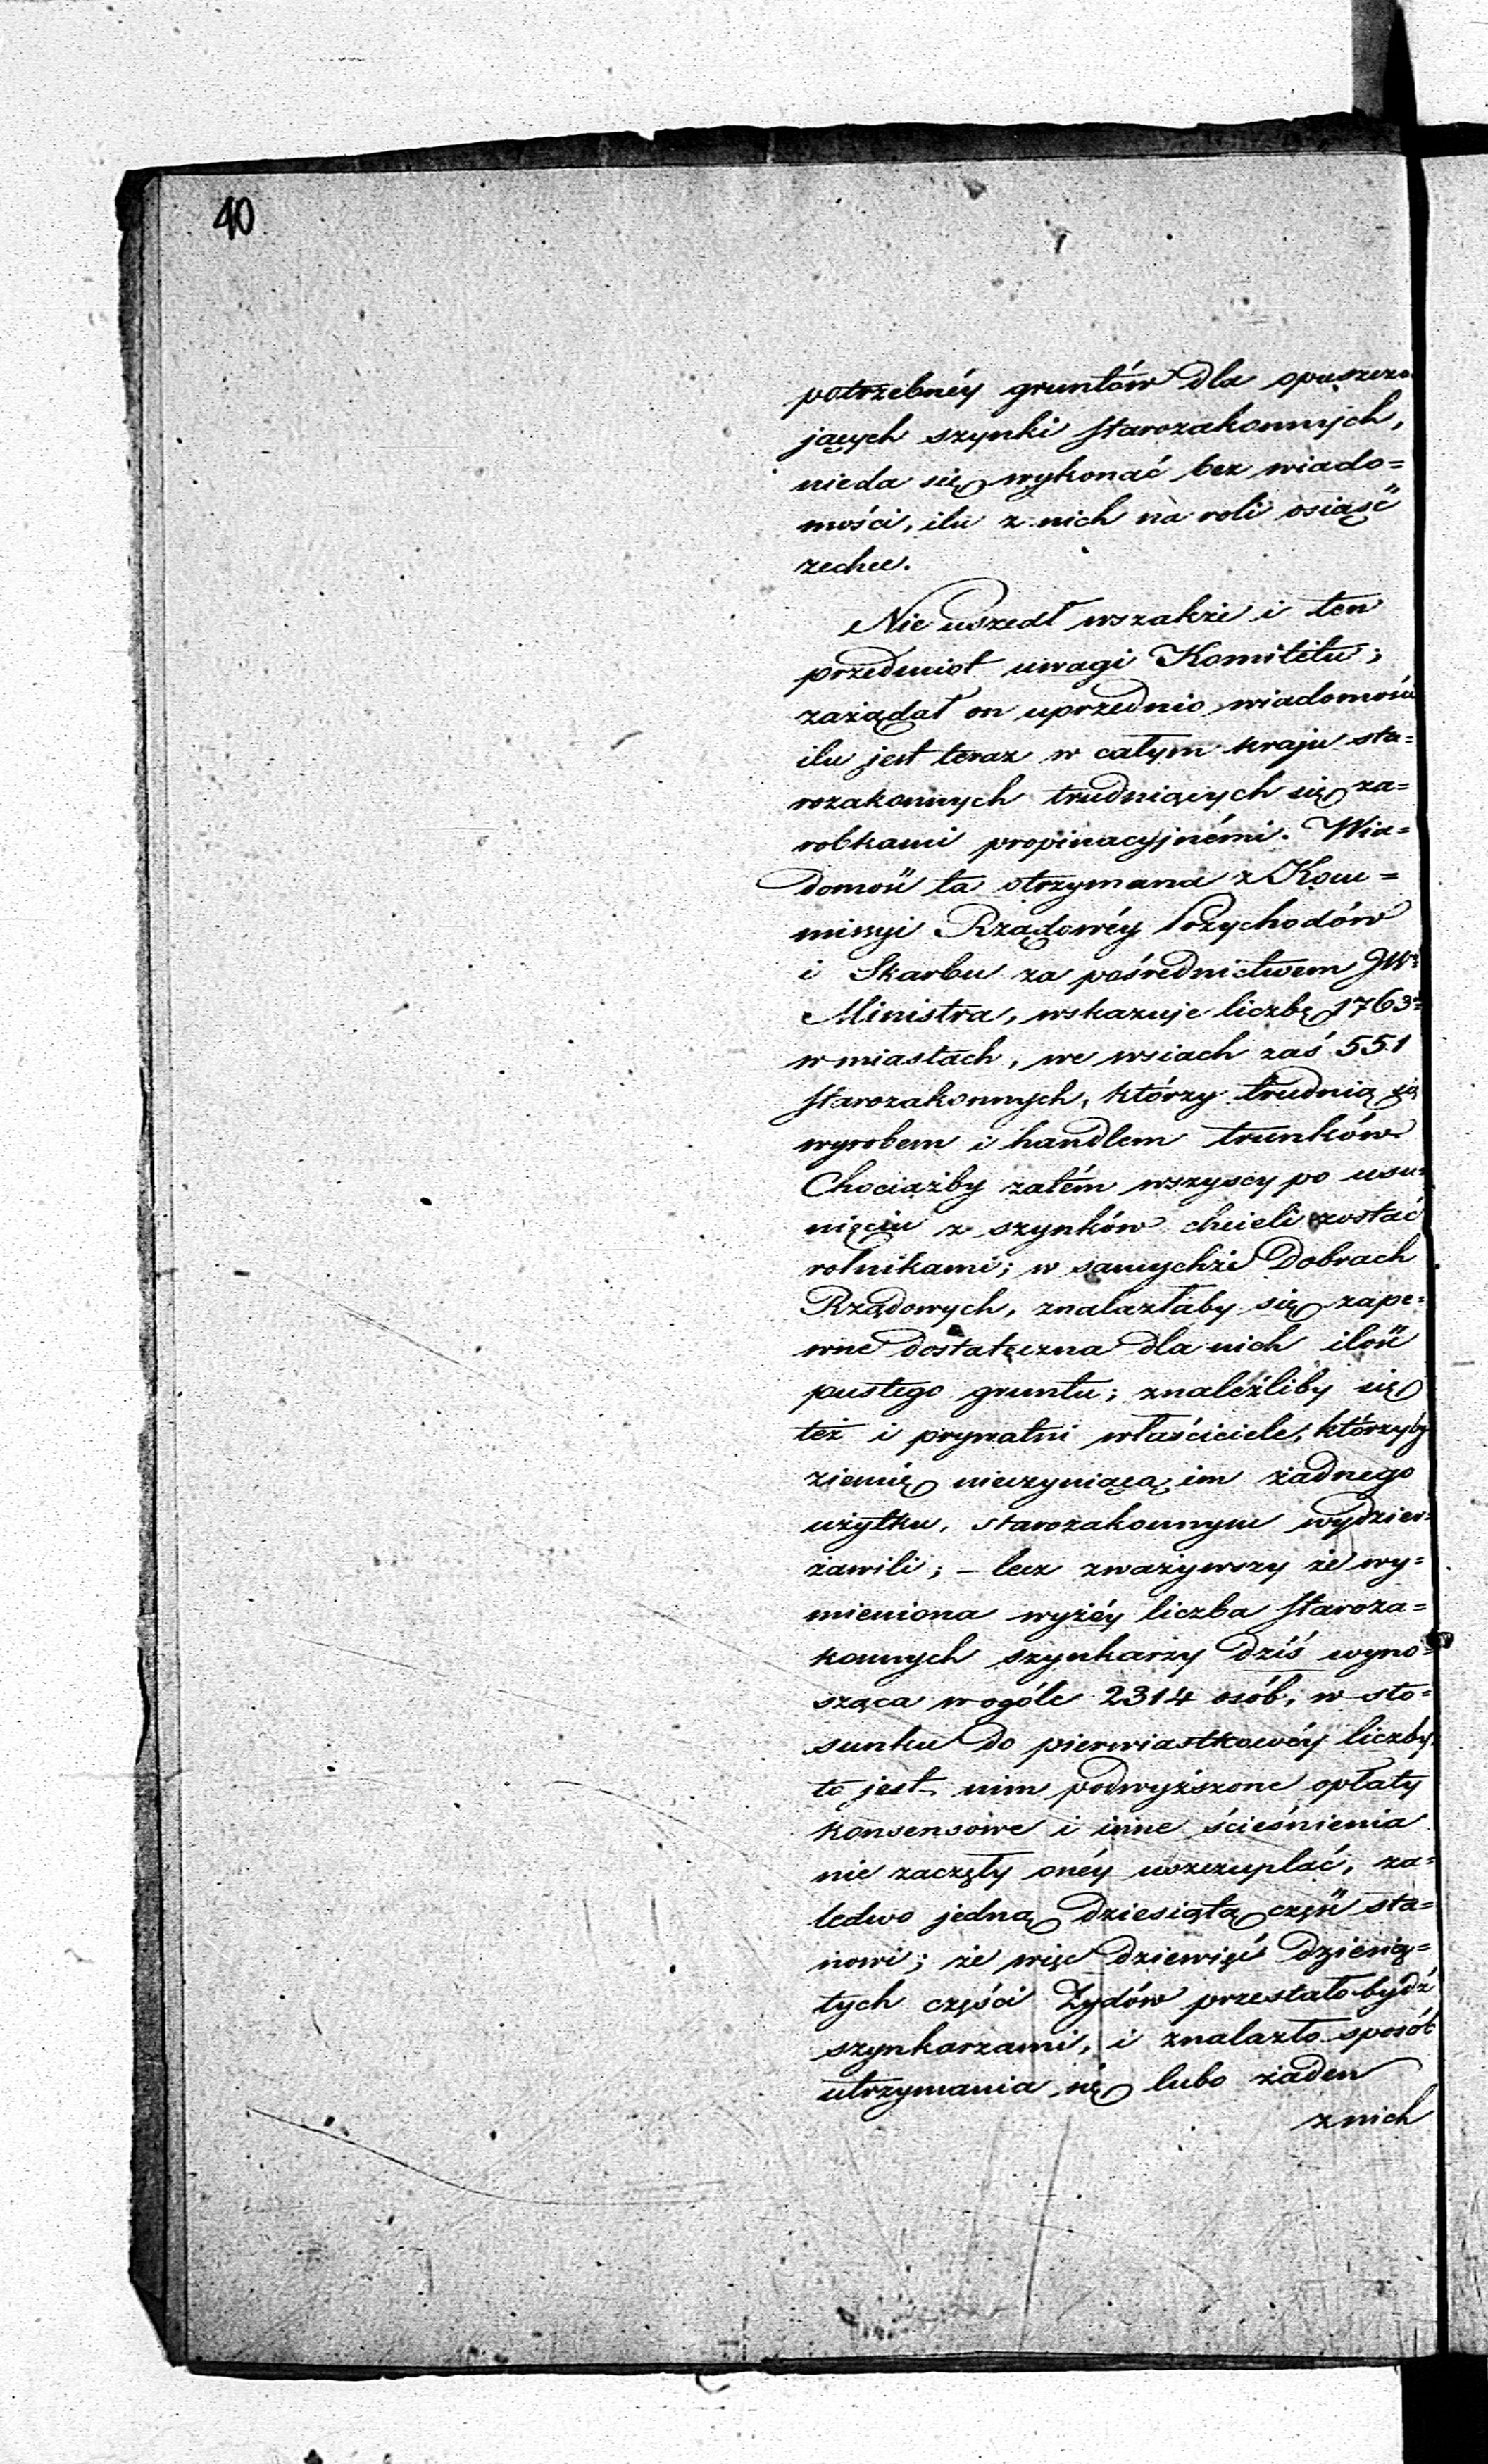 40
potrzebnéy gruntów dla opuszcza
jących szynki starozakonnych,
nieda się wykonać bez wiado=
mości, ilu z nich na roli osiąść
zechce.
Nie uszedł wszakże i ten
przedmiot uwagi Komitetu;
zażądał on uprzednio wiadomości
ilu jest teraz w całym kraju sta=
rozakonnych trudniących się za=
robkami propinacyjnémi. Wia=
domość ta otrzymana z Kom=
missyi Rządowéy Przychodów
i Skarbu za pośrednictwem JW:
Ministra, wskazuje liczbę 1763:
w miastach, we wsiach zaś 551
starozakonnych, którzy trudnią się
wyrobem i handlem trunków
Chociażby zatém wszyscy po usu=
nięciu z szynków chcieli zostać
rolnikami; w samychże Dobrach
Rządowych, znalazłaby się zape=
wne dostateczna dla nich ilość
pustego gruntu; znaleźliby się
też i prywatni właściciele, którzyby
ziemię nieczyniącą im żadnego
użytku, starozakonnym wydzier=
żawili; – lecz zważywszy że wy=
mieniona wyżéy liczba staroza=
konnych szynkarzy dziś wyno=
sząca wogóle 2314 osób, w sto=
sunku do pierwiastkowéy liczby
to jest nim podwyższone opłaty
konsensowe i inne ścieśnienia
nie zaczęły onéy uszczuplać, za=
ledwo jedną dziesiątą część sta=
nowi; że więc dziewięć dziesią=
tych części Żydów przestało bydź
szynkarzami, i znalazło sposób
utrzymania się lubo żaden
z nich